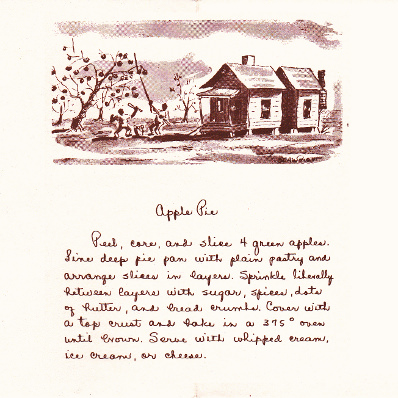 Apple Pie
Peel, core, and slice 4 green apples.
Line deep pie pan with plain pastry and
arrange slices in layers. Sprinkle liberally
between layers with sugar, spices, dots
of butter, and bread crumbs. Cover with
a top crust and bake in a 375° oven
until brown. Serve with whipped cream,
ice cream, or cheese.